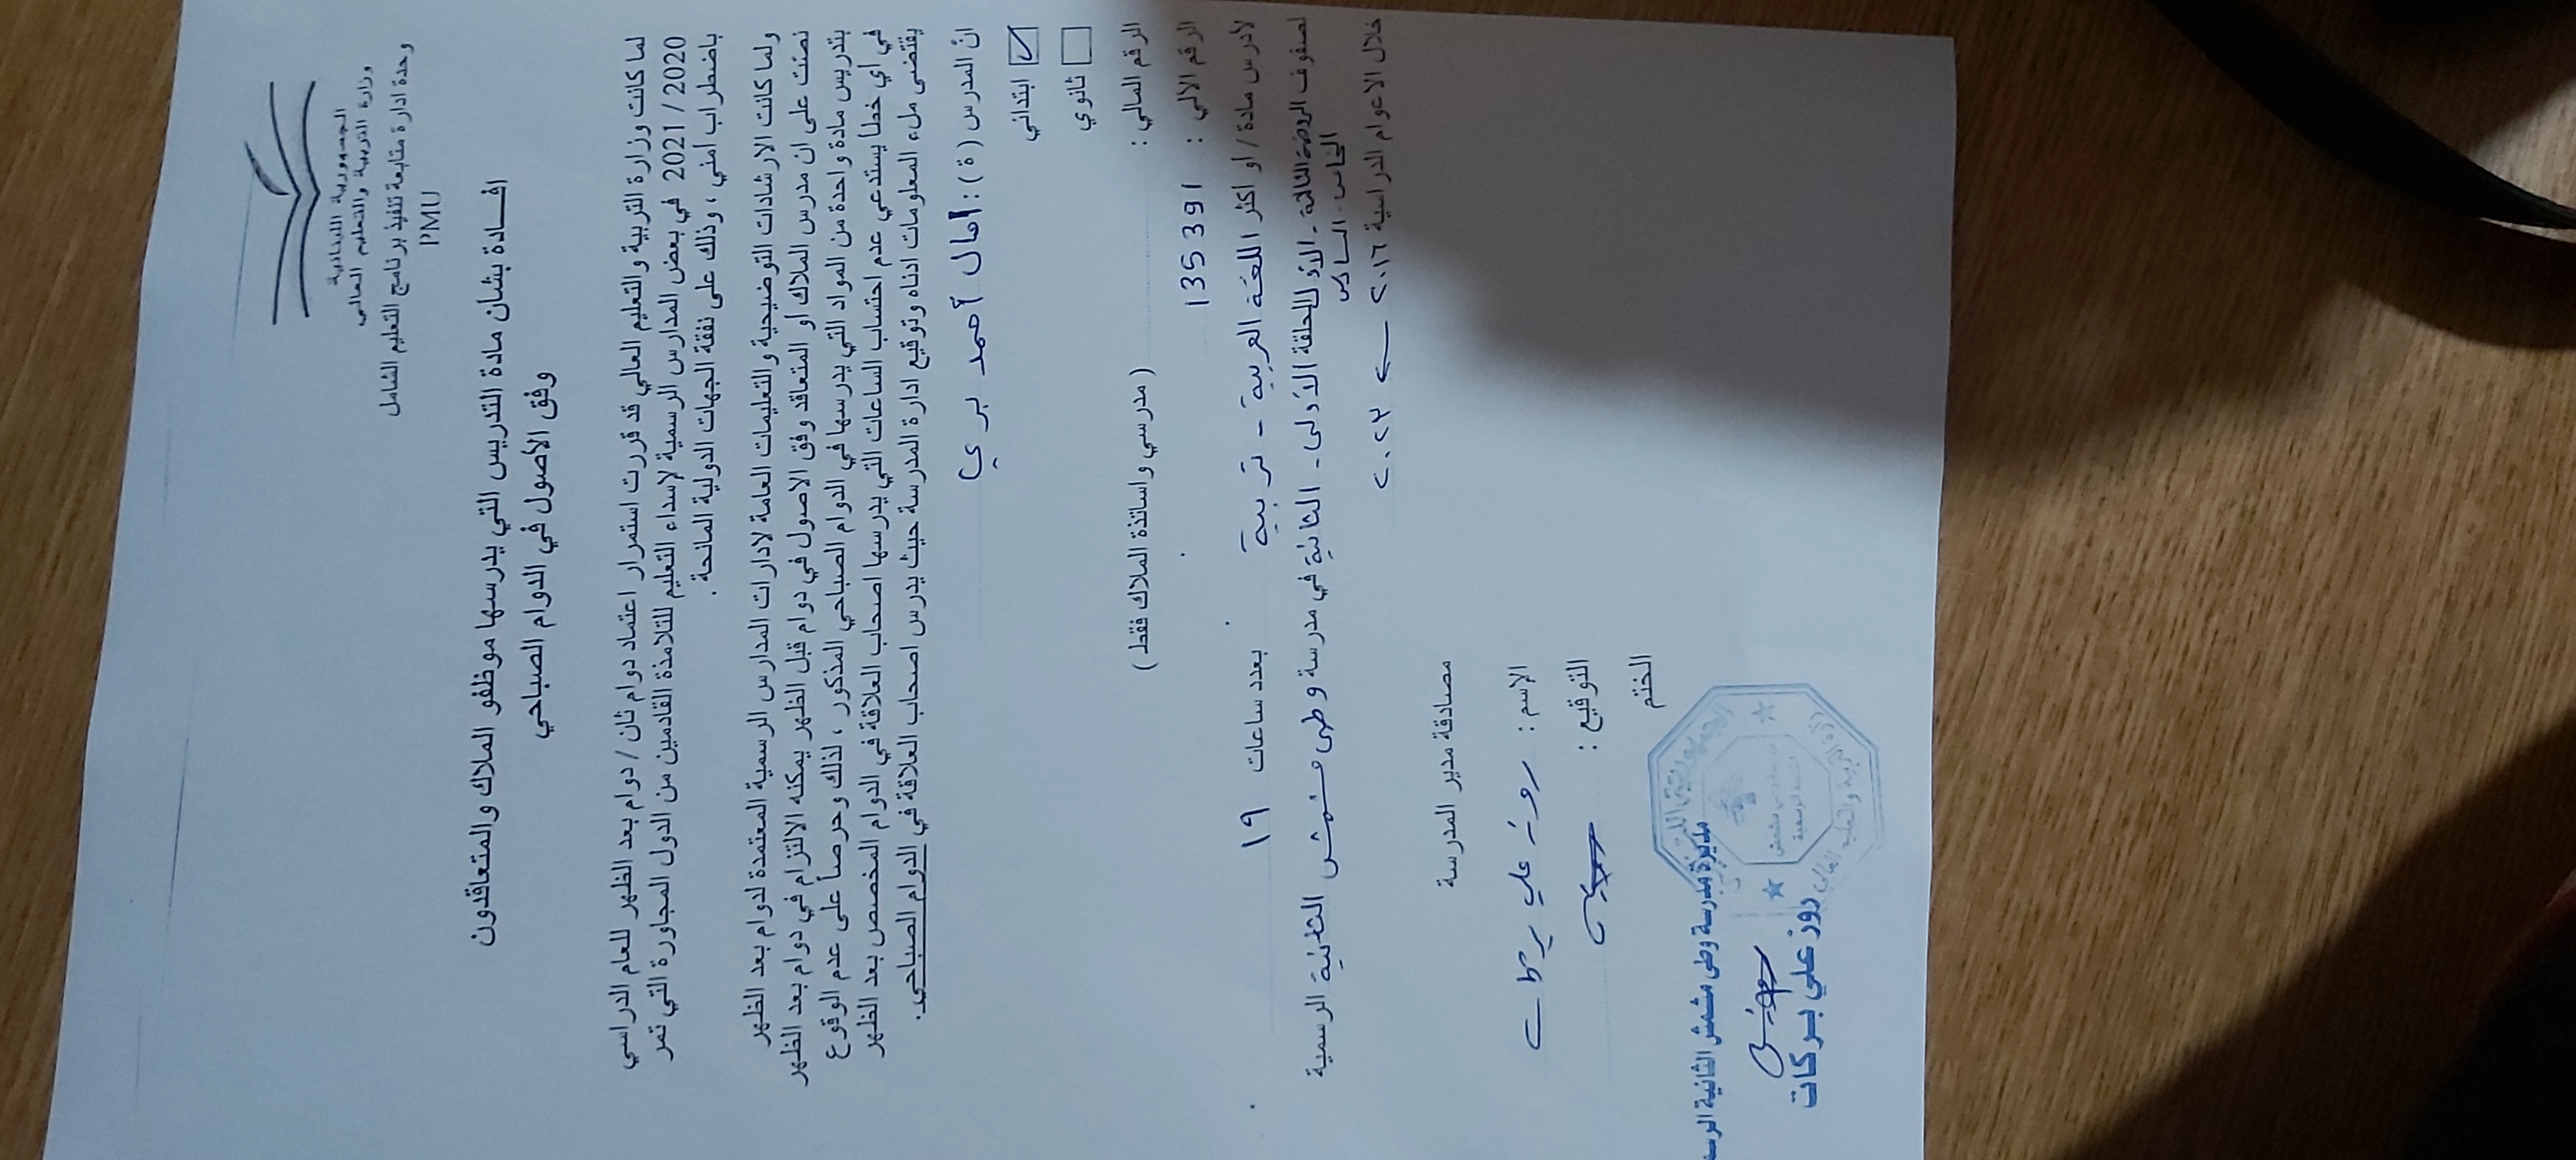 الجمهورية اللبنانية
وزارة التربية والتعليم العالي
وحدة ادارة متابعة تنفيذ برنامج التعليم الشامل
PMU
افــادة بشان مادة التدريس التي يدرسها موظفو الملاك والمتعاقدون
وفق الأصول في الدوام الصباحي
لما كانت وزارة التربية والتعليم العالي قد قررت استمرار اعتماد دوام ثان / دوام بعد الظهر للعام الدراسي
2020 / 2021 في بعض المدارس الرسمية لإسداء التعليم للتلامذة القادمين من الدول المجاورة التي تمر
باضطراب امني ، وذلك على نفقة الجهات الدولية المانحة .
ولما كانت الارشادات التوضيحية والتعليمات العامة لادارات المدارس الرسمية المعتمدة لدوام بعد الظهر
نصت على ان مدرس الملاك او المتعاقد وفق الاصول في دوام قبل الظهر يمكنه الالتزام في دوام بعد الظهر
بتدريس مادة واحدة من المواد التي يدرسها في الدوام الصباحي المذكور ، لذلك وحرصاً على عدم الوقوع
في اي خطأ يستدعي عدم احتساب الساعات التي يدرسها اصحاب العلاقة في الدوام المخصص بعد الظهر
يقتضى ملء المعلومات ادناه وتوقيع ادارة المدرسة حيث يدرس اصحاب العلاقة في الدوام الصباحي .
ان المدرس ( ة ) : آمال أحمد بري
ابتدائي ☑
ثانوي ☐
الرقم المالي : ( مدرسي واساتذة الملاك فقط )
الرقم الالي : 135391
لادرس مادة / او اكثر اللغة العربية - تربية بعدد ساعات ١٩
لصفوف الروضة الثالثة - الأول للحلقة الأولى - الثانية في مدرسة وطى مشمش الثانية الرسمية
الخامس - السادس
خلال الاعوام الدراسية ٢٠١٦ ← ٢٠٢٣
مصادقة مدير المدرسة
الإسم : روز علي بركات
التوقيع :
الختم
الجمهورية اللبنانية
وزارة التربية والتعليم العالي
مديرة مدرسة وطى مشمش الثانية الرسمية
روز علي بركات